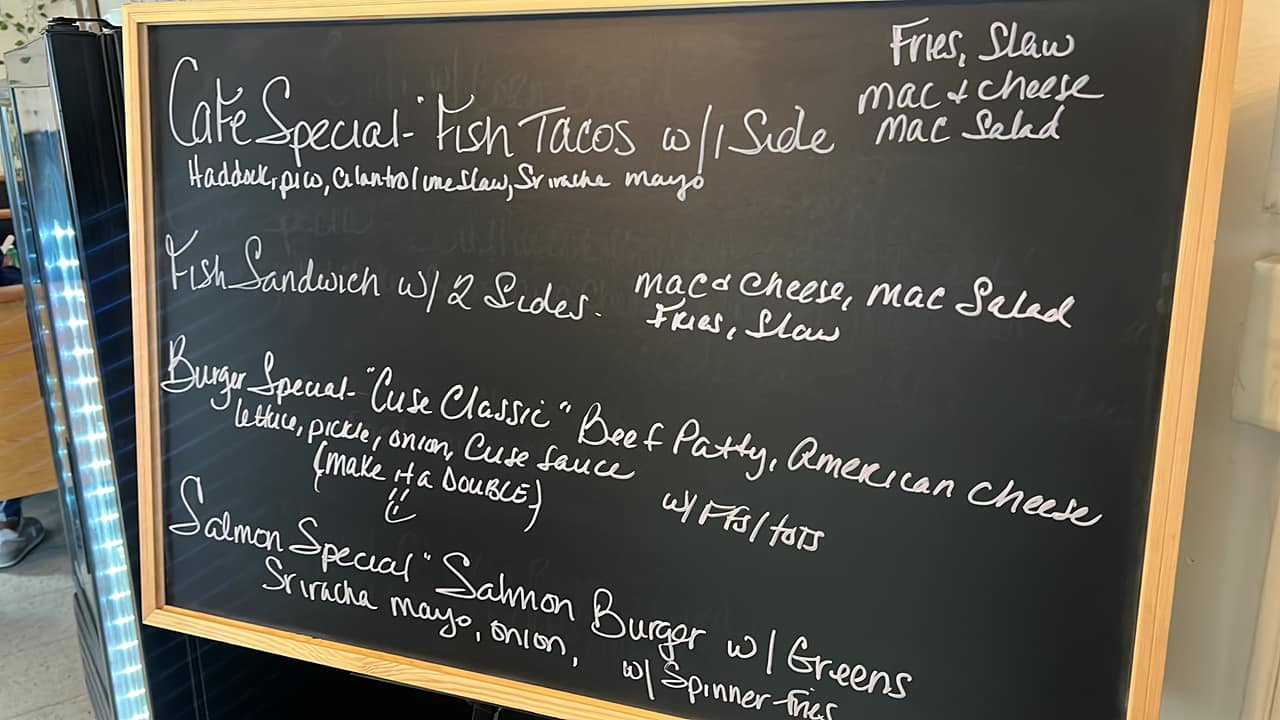 Fries, Slaw
mac & cheese
mac Salad
Café Special - "Fish Tacos w/ 1 Side
Haddock, pico, cilantro lime slaw, Sriracha mayo
Fish Sandwich w/ 2 Sides. mac & cheese, mac Salad
Fries, Slaw
Burger Special - "Cuse Classic" Beef Patty, American cheese
lettuce, pickle, onion, Cuse sauce
(make it a DOUBLE) w/ FFs/tots
Salmon Special " Salmon Burger w/ Greens
Sriracha mayo, onion, w/ Spinner fries